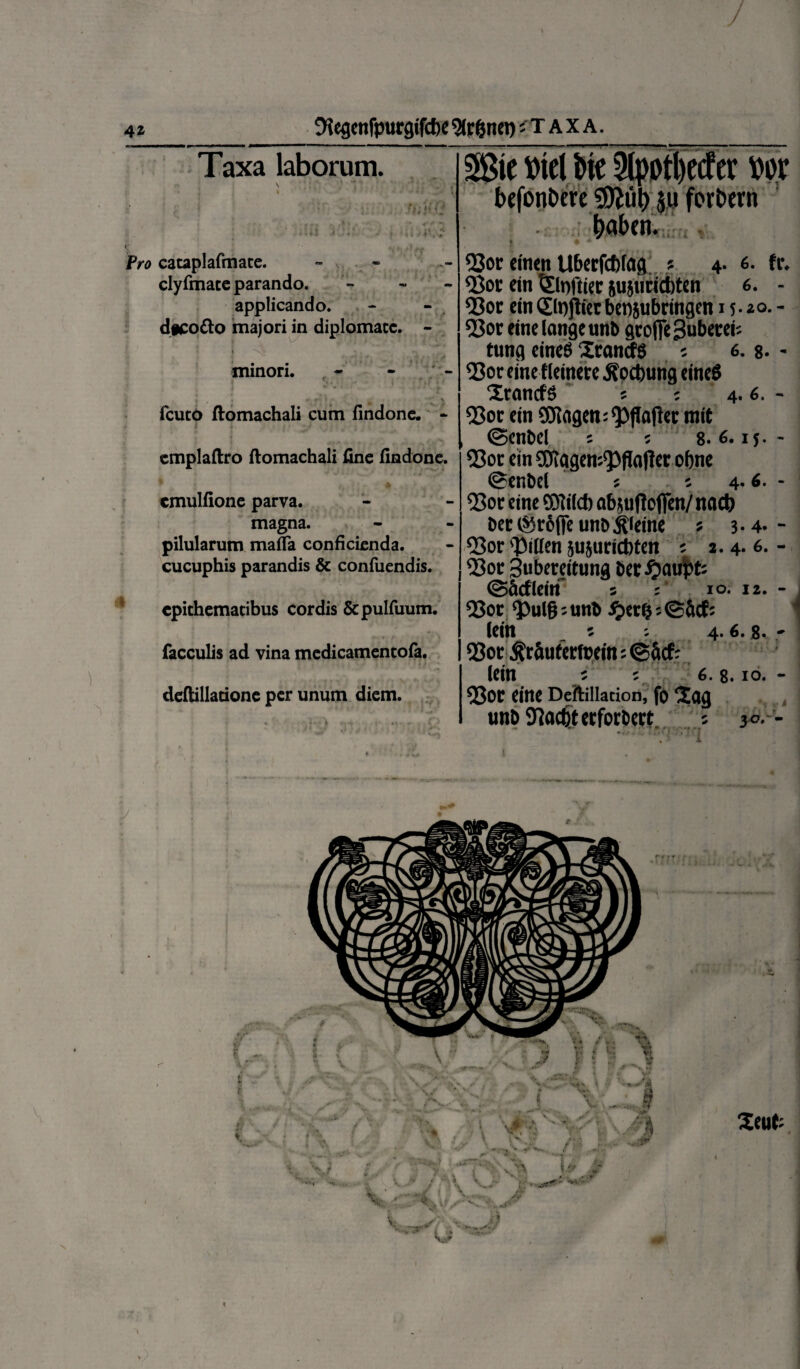 42 Regenſpurgiſche Artzney⸗TAXA.
Taxa laborum.
Pro cataplaſmate. - - -
clyſmate parando. - - -
applicando. - -
decocto majori in diplomate. -
minori. - - -
ſcuto ſtomachali cum ſindone. -
emplaſtro ſtomachali ſine ſindone.
emulſione parva. - -
magna. - -
pilularum maſſa conficienda. -
cucuphis parandis & conſuendis.
epithematibus cordis & pulſuum.
ſacculis ad vina medicamentoſa.
deſtillatione per unum diem.
Wie viel die Apothecker vor
beſondere Müh zu fordern
haben.
Vor einen Uberſchlag ⸗ 4. 6. kr.
Vor ein Clyſtier zuzurichten 6. -
Vor ein Clyſtier beyzubringen 15. 20. -
Vor eine lange und groſſe Zuberei⸗
tung eines Trancks ⸗ 6. 8. -
Vor eine kleinere Kochung eines
Trancks ⸗ ⸗ 4. 6. -
Vor ein Magen⸗Pflaſter mit
Sendel ⸗ ⸗ 8. 6. 15. -
Vor ein Magen⸗Pflaſter ohne
Sendel ⸗ ⸗ 4. 6. -
Vor eine Milch abzuſtoſſen/ nach
der Gröſſe und Kleine ⸗ 3. 4. -
Vor Pillen zuzurichten ⸗ 2. 4. 6. -
Vor Zubereitung der Haupt⸗
Säcklein ⸗ ⸗ 10. 12. -
Vor Pulß⸗ und Hertz⸗Säck⸗
lein ⸗ ⸗ 4. 6. 8. -
Vor Kräuterwein⸗Säck⸗
lein ⸗ ⸗ 6. 8. 10. -
Vor eine Deſtillation, ſo Tag
und Nacht erfordert ⸗ 30. -
Teut⸗